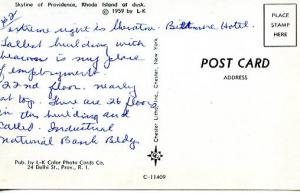 Skyline of Providence, Rhode Island at dusk.
© 1959 by L-K
#2
extreme right is Sheraton-Biltmore Hotel.
Tallest building with
beacon is my place
of employment.
22nd floor, nearly
at top. There are 26 floors
in this building and
called. Industrial
National Bank Bldg.
Pub. by L-K Color Photo Cards Co.
24 Delhi St., Prov., R. I.
Chester Litho., Inc., Chester, New York
C-11409
PLACE
STAMP
HERE
POST CARD
ADDRESS